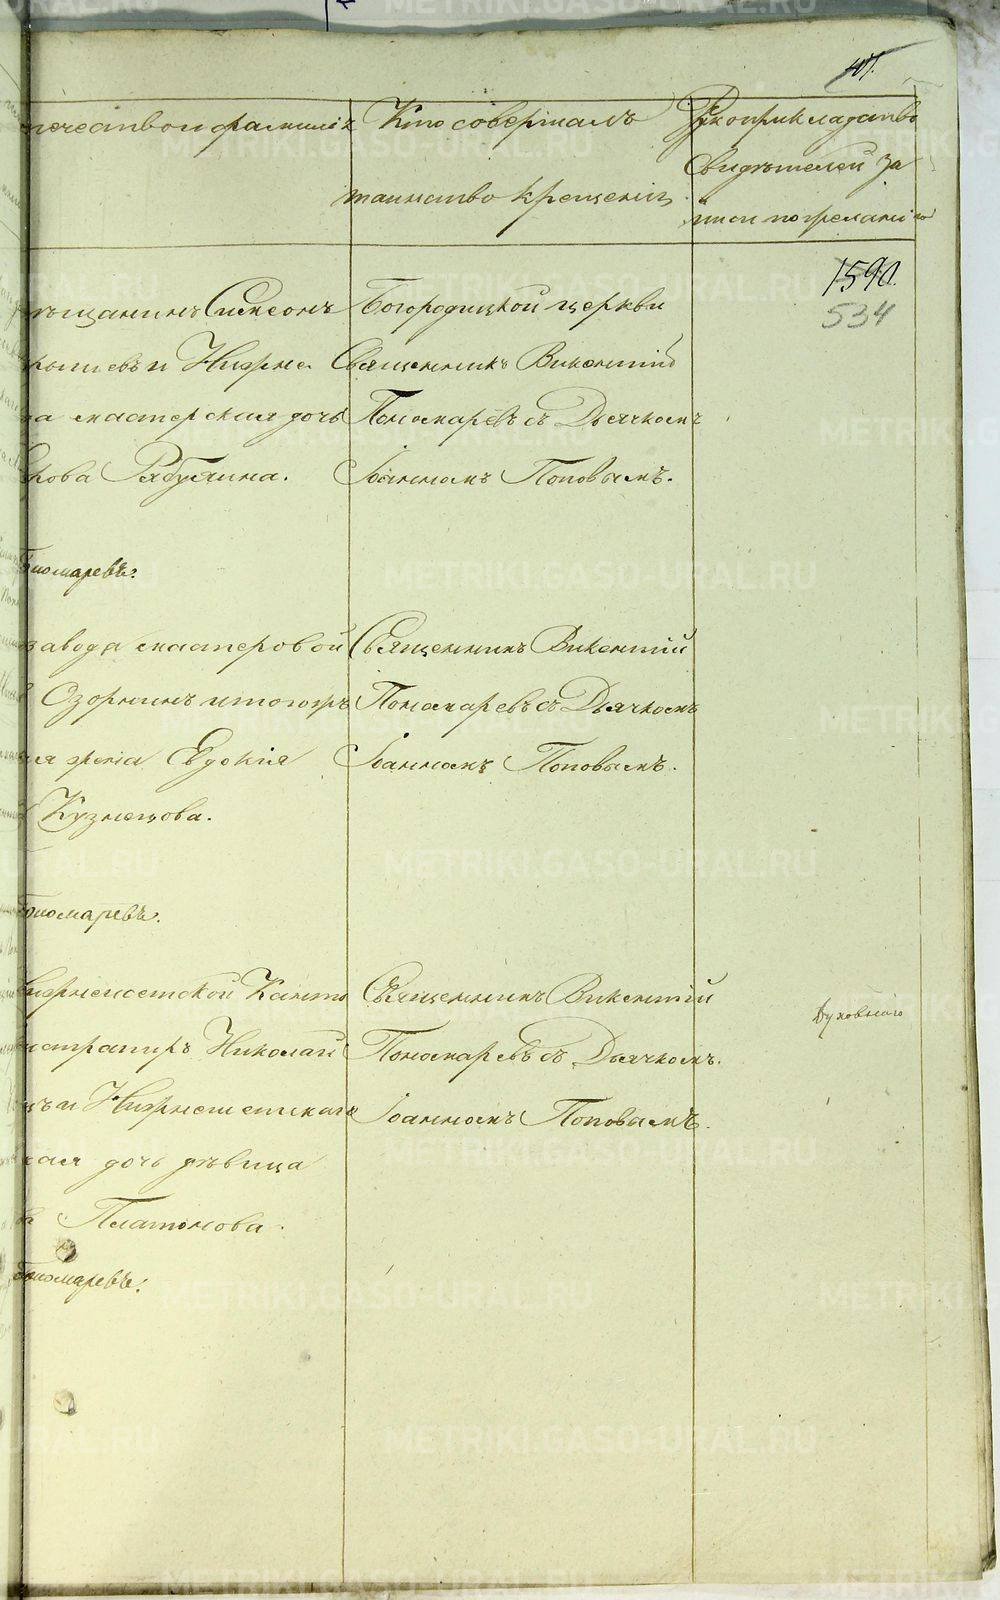 407.
течество и фамилія
Кто совершалъ
таинство крещенія
Рукоприкладство
свидѣтелей за
писи по желанію
1590.
534
ѣщанинъ Симеонъ
и Нижне
мастерская дочь
кова Рябухина.
Богородицкой церкви
Священникъ Викентій
Пономаревъ съ Дьячкомъ
Іоанномъ Поповымъ.
ономаревъ.
завода мастеровой
Озорнинъ и того жъ
жена Евдокія
Кузнецова.
Священникъ Викентій
Пономаревъ съ Дьячкомъ
Іоанномъ Поповымъ.
ономаревъ.
ижнеисетской Конто
истраторъ Николай
и Нижнеисетскаго
кая дочь дѣвица
Платонова.
Священникъ Викентій
Пономаревъ съ Дьячкомъ
Іоанномъ Поповымъ.
Духовнаго
ономаревъ.
METRIKI.GASO-URAL.RU